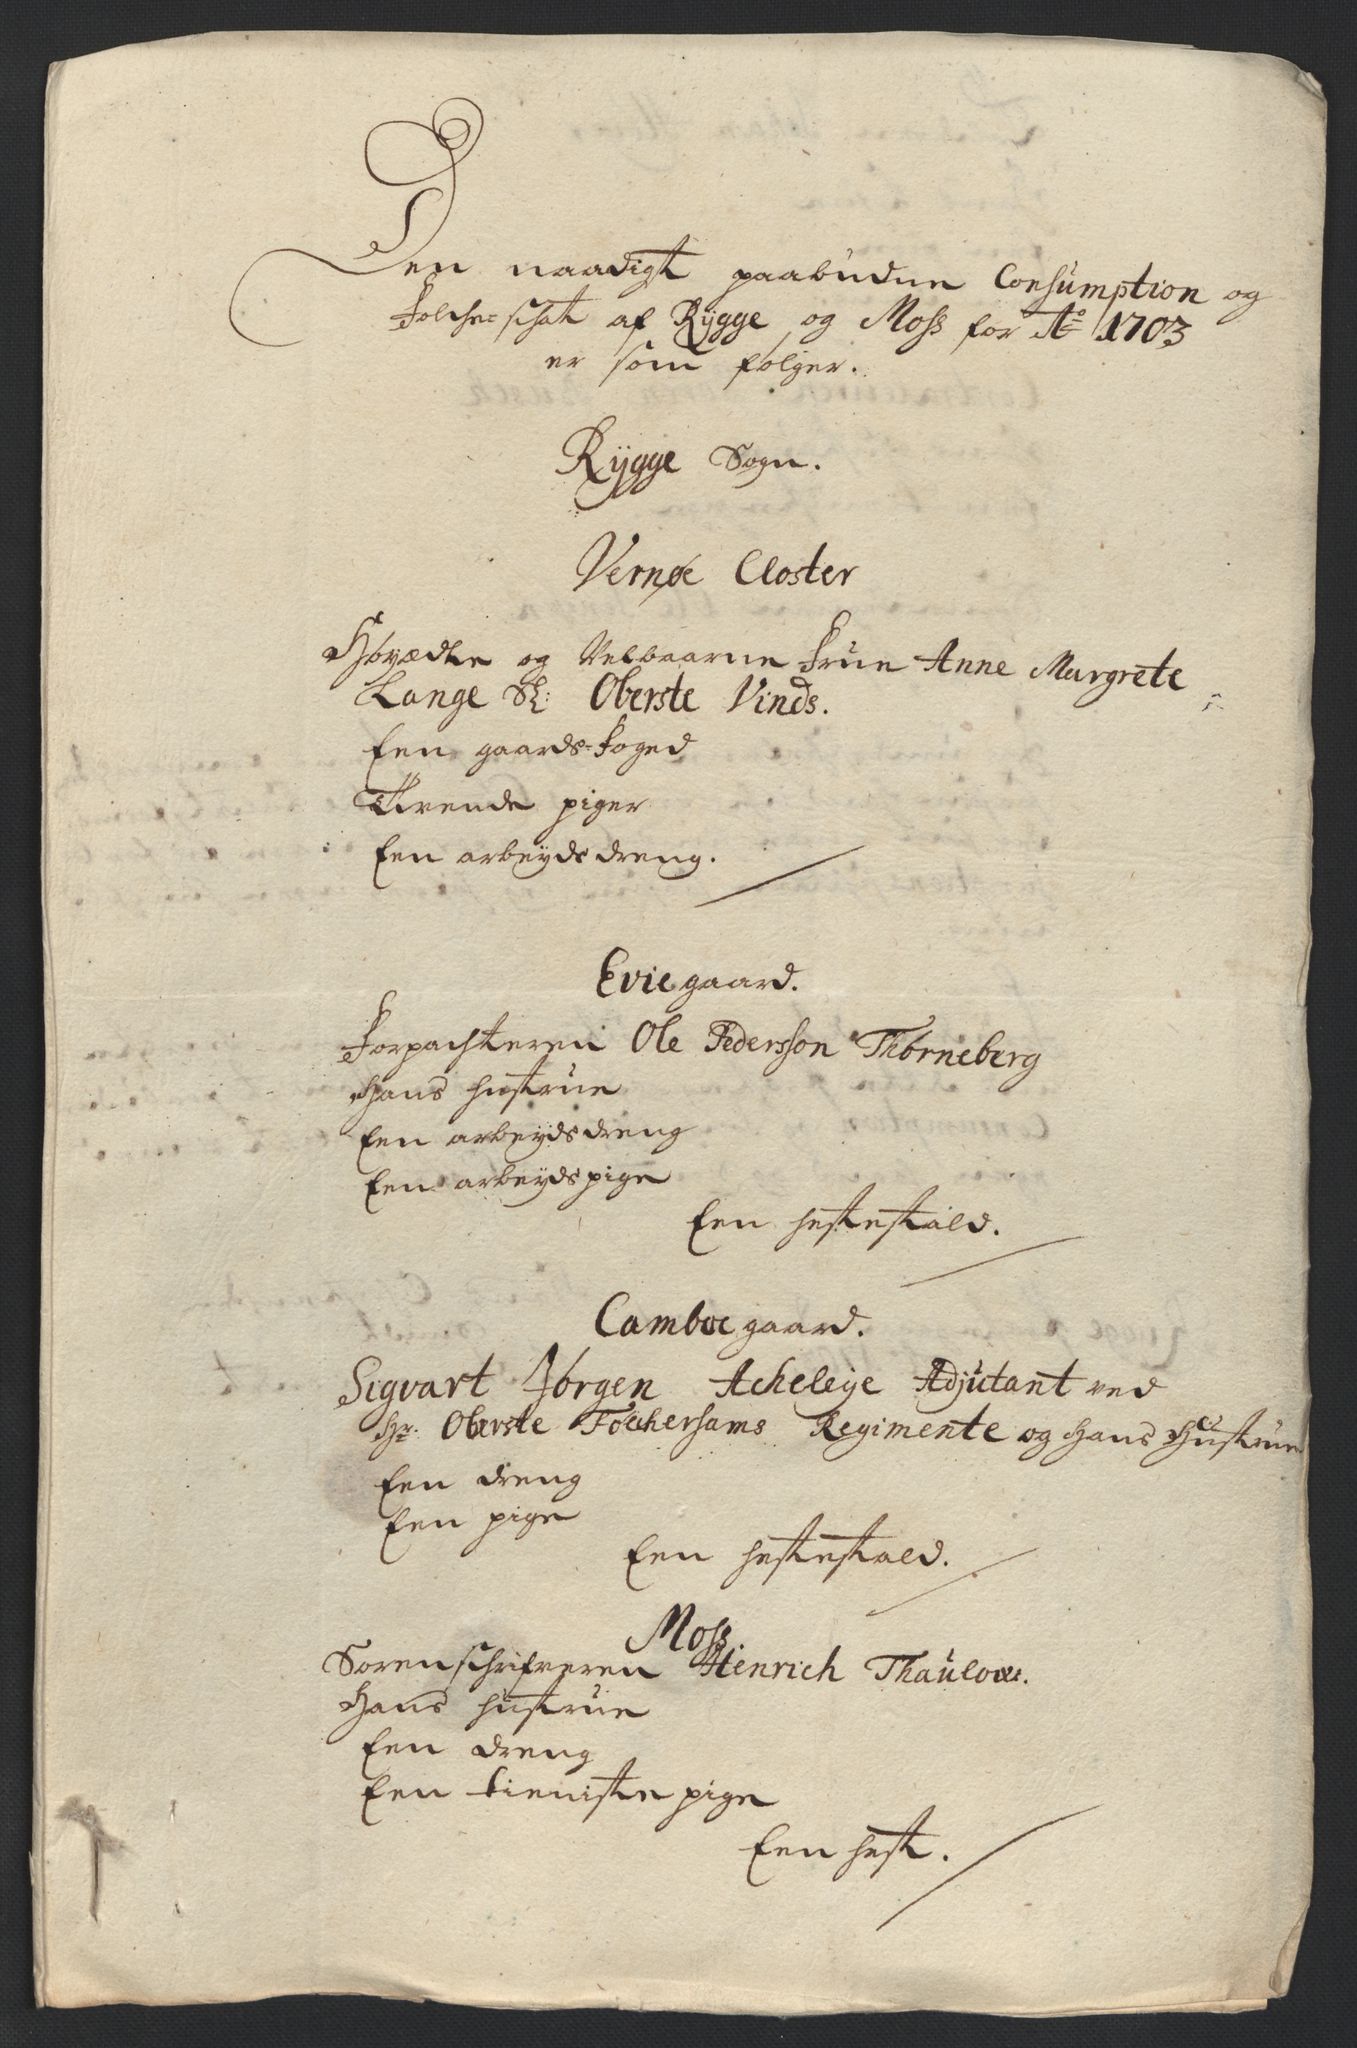 Den naadigst paabudne Consumption og
Folche-schat af Rÿgge og Moss for Ao 1703
er som følger.
Rÿgge Sogn.
Vernøe Closter
Høyædle og Velbaarne Frue Anne Margrete
Lange Sl: Oberste Vinds.
Een gaards-foged
Tvende piger
Een arbeyds dreng.
Evie gaard.
Forpachteren Ole Pedersson Thorneberg
Hans hustrue
Een arbeyds dreng
Een arbeyds pige
Een hestestald.
Camboe gaard.
Sigvart Jørgen Acheleÿe Adjutant ved
Hr: Oberste Folchersams Regimente og Hans Hustrue
Een dreng
Een pige
Een hestestald.
Moss
Sorenschrifveren Henrich Thaulow.
Hans hustrue
Een dreng
Een tieniste pige
Een hest.